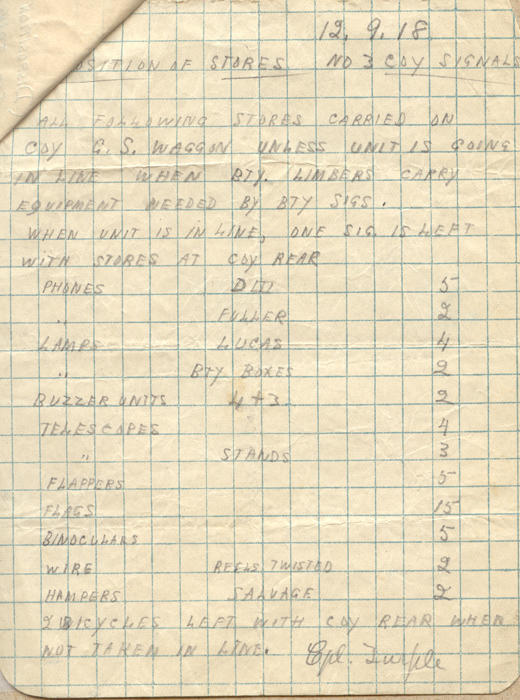 12.9.18
OSITION OF STORES NO 3 COY SIGNALS
ALL FOLLOWING STORES CARRIED ON
COY G.S. WAGGON UNLESS UNIT IS GOING
IN LINE WHEN BTY. LIMBERS CARRY
EQUIPMENT NEEDED BY BTY SIGS.
WHEN UNIT IS IN LINE, ONE SIG. IS LEFT
WITH STORES AT COY REAR
PHONES DIII 5
" FULLER 2
LAMPS LUCAS 4
" BTY BOXES 2
BUZZER UNITS 4+3 2
TELESCOPES 4
" STANDS 3
FLAPPERS 5
FLAGS 15
BINOCULARS 5
WIRE REELS TWISTED 2
HAMPERS SALVAGE 2
2 BICYCLES LEFT WITH COY REAR WHEN
NOT TAKEN IN LINE. Cpl.